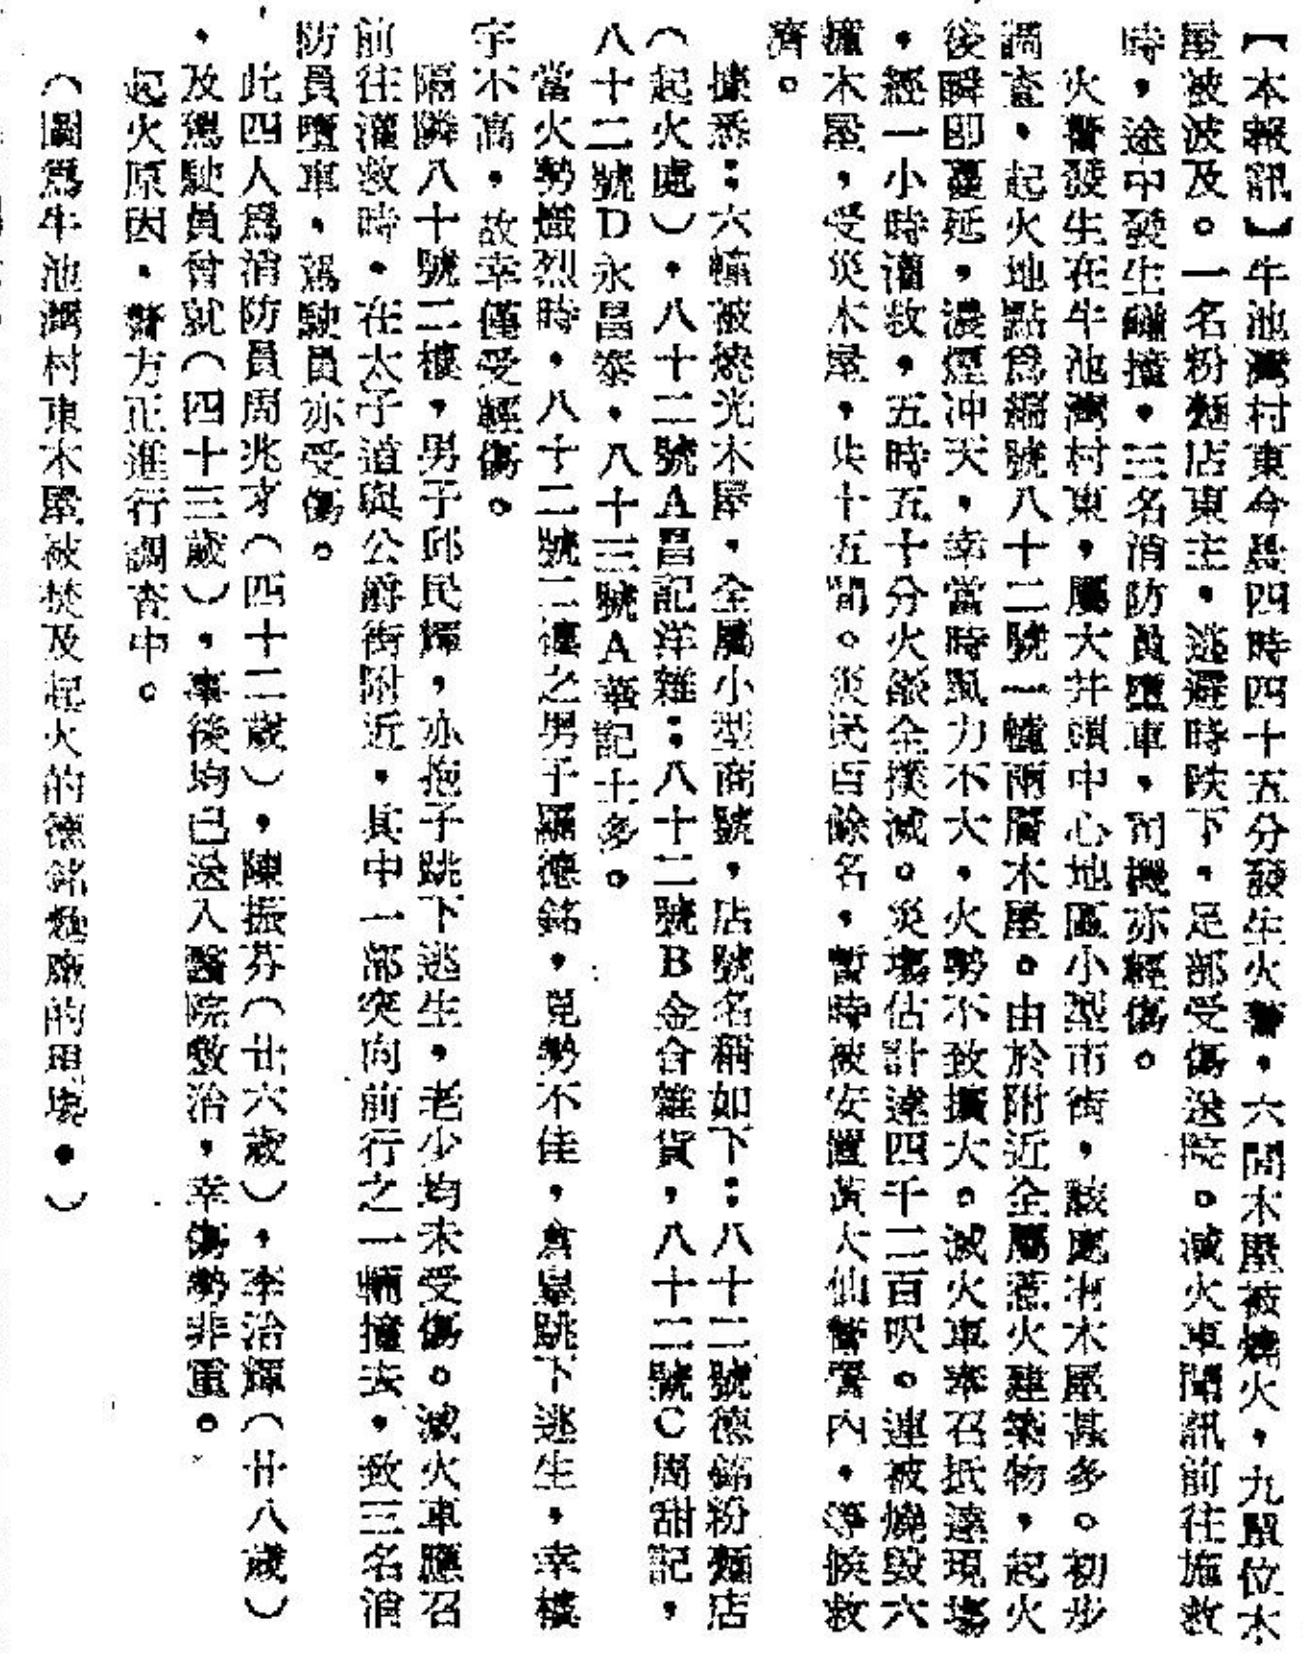 【本報訊】牛池灣村東今晨四時四十五分發生火警，六間木屋被燒火，九單位木
屋被波及。一名粉麵店東主，逃避時跌下，足部受傷送院。滅火車聞訊前往施救
時，途中發生碰撞，三名消防員墮車，司機亦輕傷。
火警發生在牛池灣村東，屬大井頭中心地區小型市街，該處有木屋甚多。初步
調查，起火地點爲編號八十二號一幢兩層木屋。由於附近全屬惹火建築物，起火
後瞬即蔓延，濃煙冲天，幸當時風力不大，火勢不致擴大。滅火車奉召抵達現塲
，經一小時灌救，五時五十分火燄全撲滅。災塲估計達四千二百呎。連被燒毀六
幢木屋，受災木屋，共十五間。災民百餘名，暫時被安置黃大仙警署內，等候救
濟。
據悉：六幢被燒光木屋，全屬小型商號，店號名稱如下：八十二號德銘粉麵店
（起火處），八十二號A昌記洋雜：八十二號B金合雜貨，八十二號C周甜記，
八十二號D永昌泰，八十三號A華記士多。
當火勢熾烈時，八十二號二樓之男子羅德銘，見勢不佳，倉皇跳下逃生，幸樓
宇不高，故幸僅受輕傷。
隔隣八十號二樓，男子邱民輝，亦抱子跳下逃生，老少均未受傷。滅火車應召
前往灌救時，在太子道與公爵街附近，其中一部突向前行之一輛撞去，致三名消
防員墮車，駕駛員亦受傷。
此四人爲消防員周兆才（四十二歲），陳振芬（廿六歲），李治輝（廿八歲）
，及駕駛員曾就（四十三歲），事後均已送入醫院敷治，幸傷勢非重。
起火原因，警方正進行調查中。
（圖爲牛池灣村東木屋被焚及起火的德銘麵廠的現塲。）